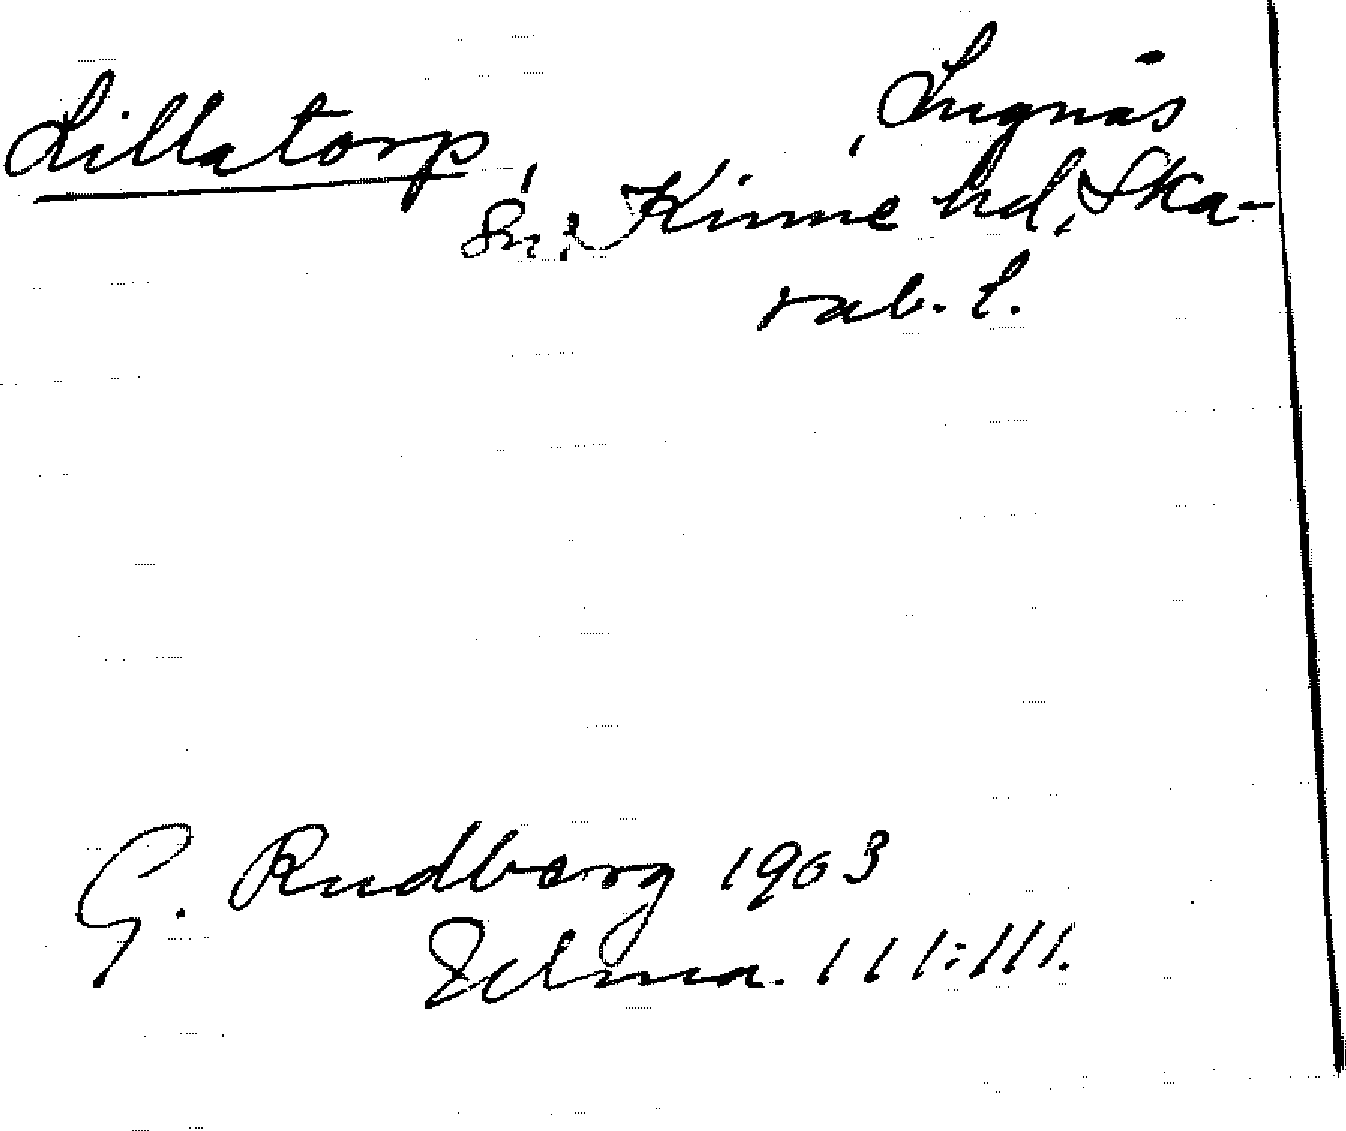 Lillatorp, Lugnås
sn, Kinne hd, Ska-
rab. l.
G. Rudberg 1903
111:111.